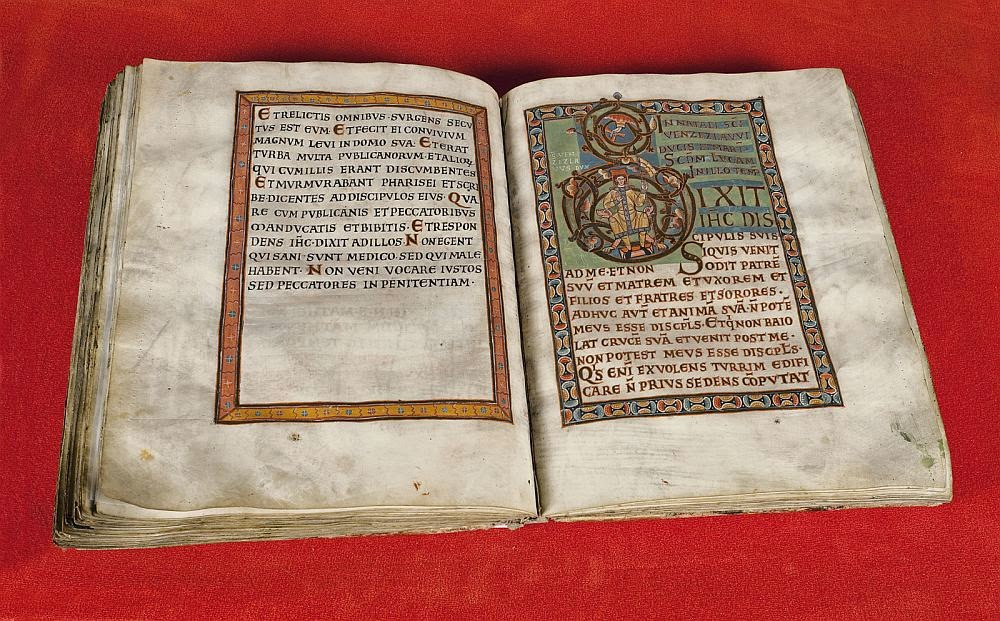 ET RELICTIS OMNIBVS · SVRGENS SECV
TVS EST EVM · ET FECIT EI CONVIVIVM
MAGNVM LEVI IN DOMO SVA · ET ERAT
TVRBA MVLTA PVBLICANORVM ET ALIORꝜ
QVI CVM ILLIS ERANT DISCVMBENTES
ET MVRMVRABANT PHARISEI ET SCRI
BE · DICENTES AD DISCIPVLOS EIVS · QVA
RE CVM PVBLICANIS ET PECCATORIBVS
MANDVCATIS ET BIBITIS · ET RESPON
DENS IH̅C · DIXIT AD ILLOS · NON EGENT
QVI SANI SVNT MEDICO · SED QVI MALE
HABENT · NON VENI VOCARE IVSTOS
SED PECCATORES IN PENITENTIAM ·
IN NATALI SC̅I
VENZEZLAVVI
DVCIS ET MART̅
SCDM̅ LVCAM
IN ILLO TEM̅
DIXIT
IH̅C DIS
CIPVLIS SVIS
SIQVIS VENIT
AD ME · ET NON ODIT PATRE̅
SVV̅ ET MATREM ET VXOREM ET
FILIOS ET FRATRES ET SORORES ·
ADHVC AVT ET ANIMA̅ SVA̅ · N̅ POTE̅
MEVS ESSE DISCPL̅S · ET Q̅ NON BAIO
LAT CRVCE̅ SVA̅ ET VENIT POST ME ·
NON POTEST MEVS ESSE DISCPL̅S ·
Q̅S ENI̅ EX VOBIS VOLENS TVRRIM EDIFI
CARE N̅ PRIVS SEDENS CO̅PVTAT